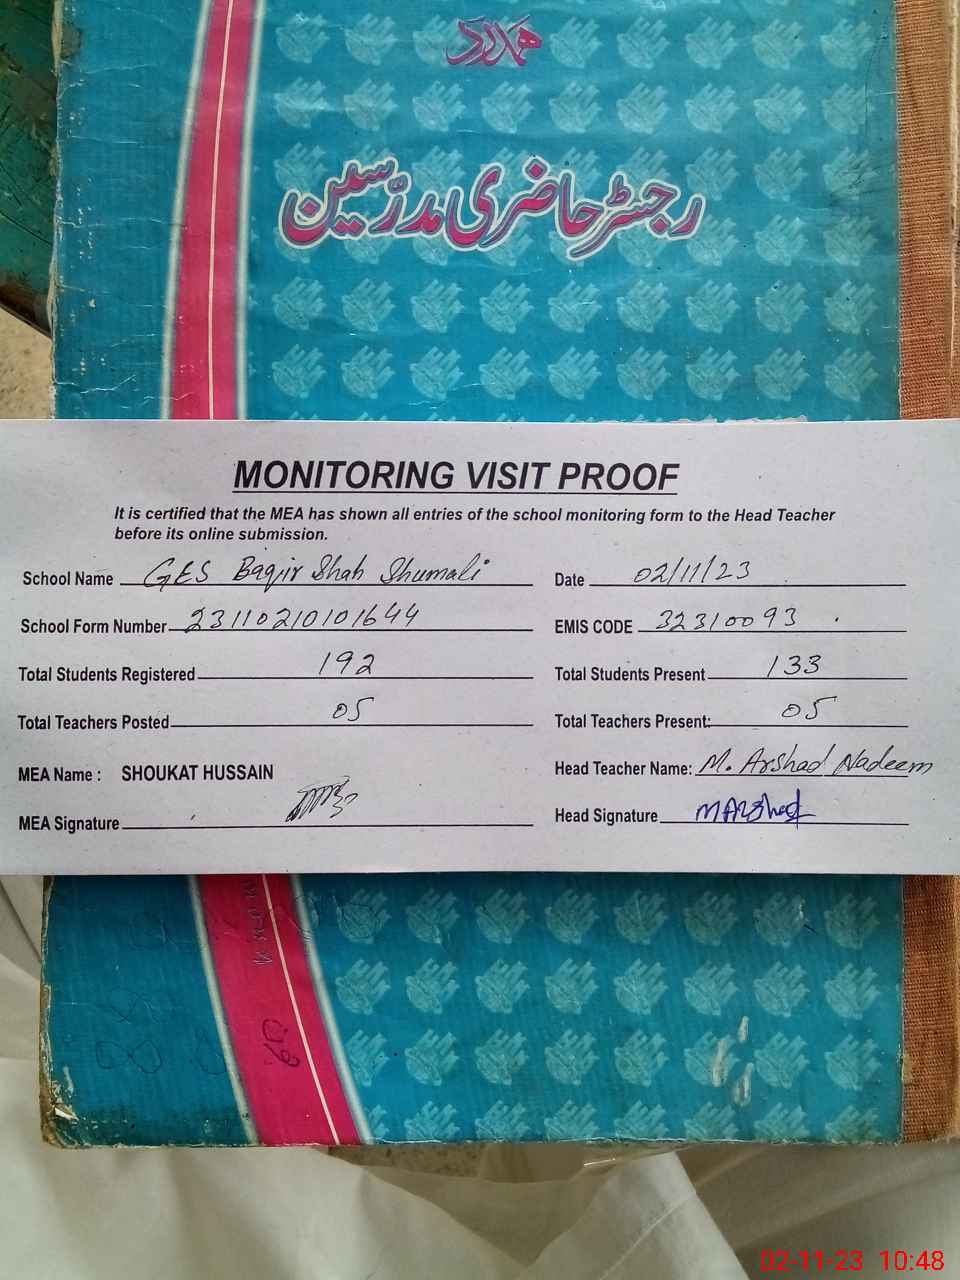 ہمدرد
رجسٹر حاضری مدرّسین
MONITORING VISIT PROOF
It is certified that the MEA has shown all entries of the school monitoring form to the Head Teacher
before its online submission.
School Name GES Baqir Shah Shumali Date 02/11/23
School Form Number 23110210101644 EMIS CODE 32310093
Total Students Registered 192 Total Students Present 133
Total Teachers Posted 05 Total Teachers Present: 05
MEA Name : SHOUKAT HUSSAIN Head Teacher Name: M. Arshad Nadeem
MEA Signature Head Signature MArshad
02-11-23 10:48